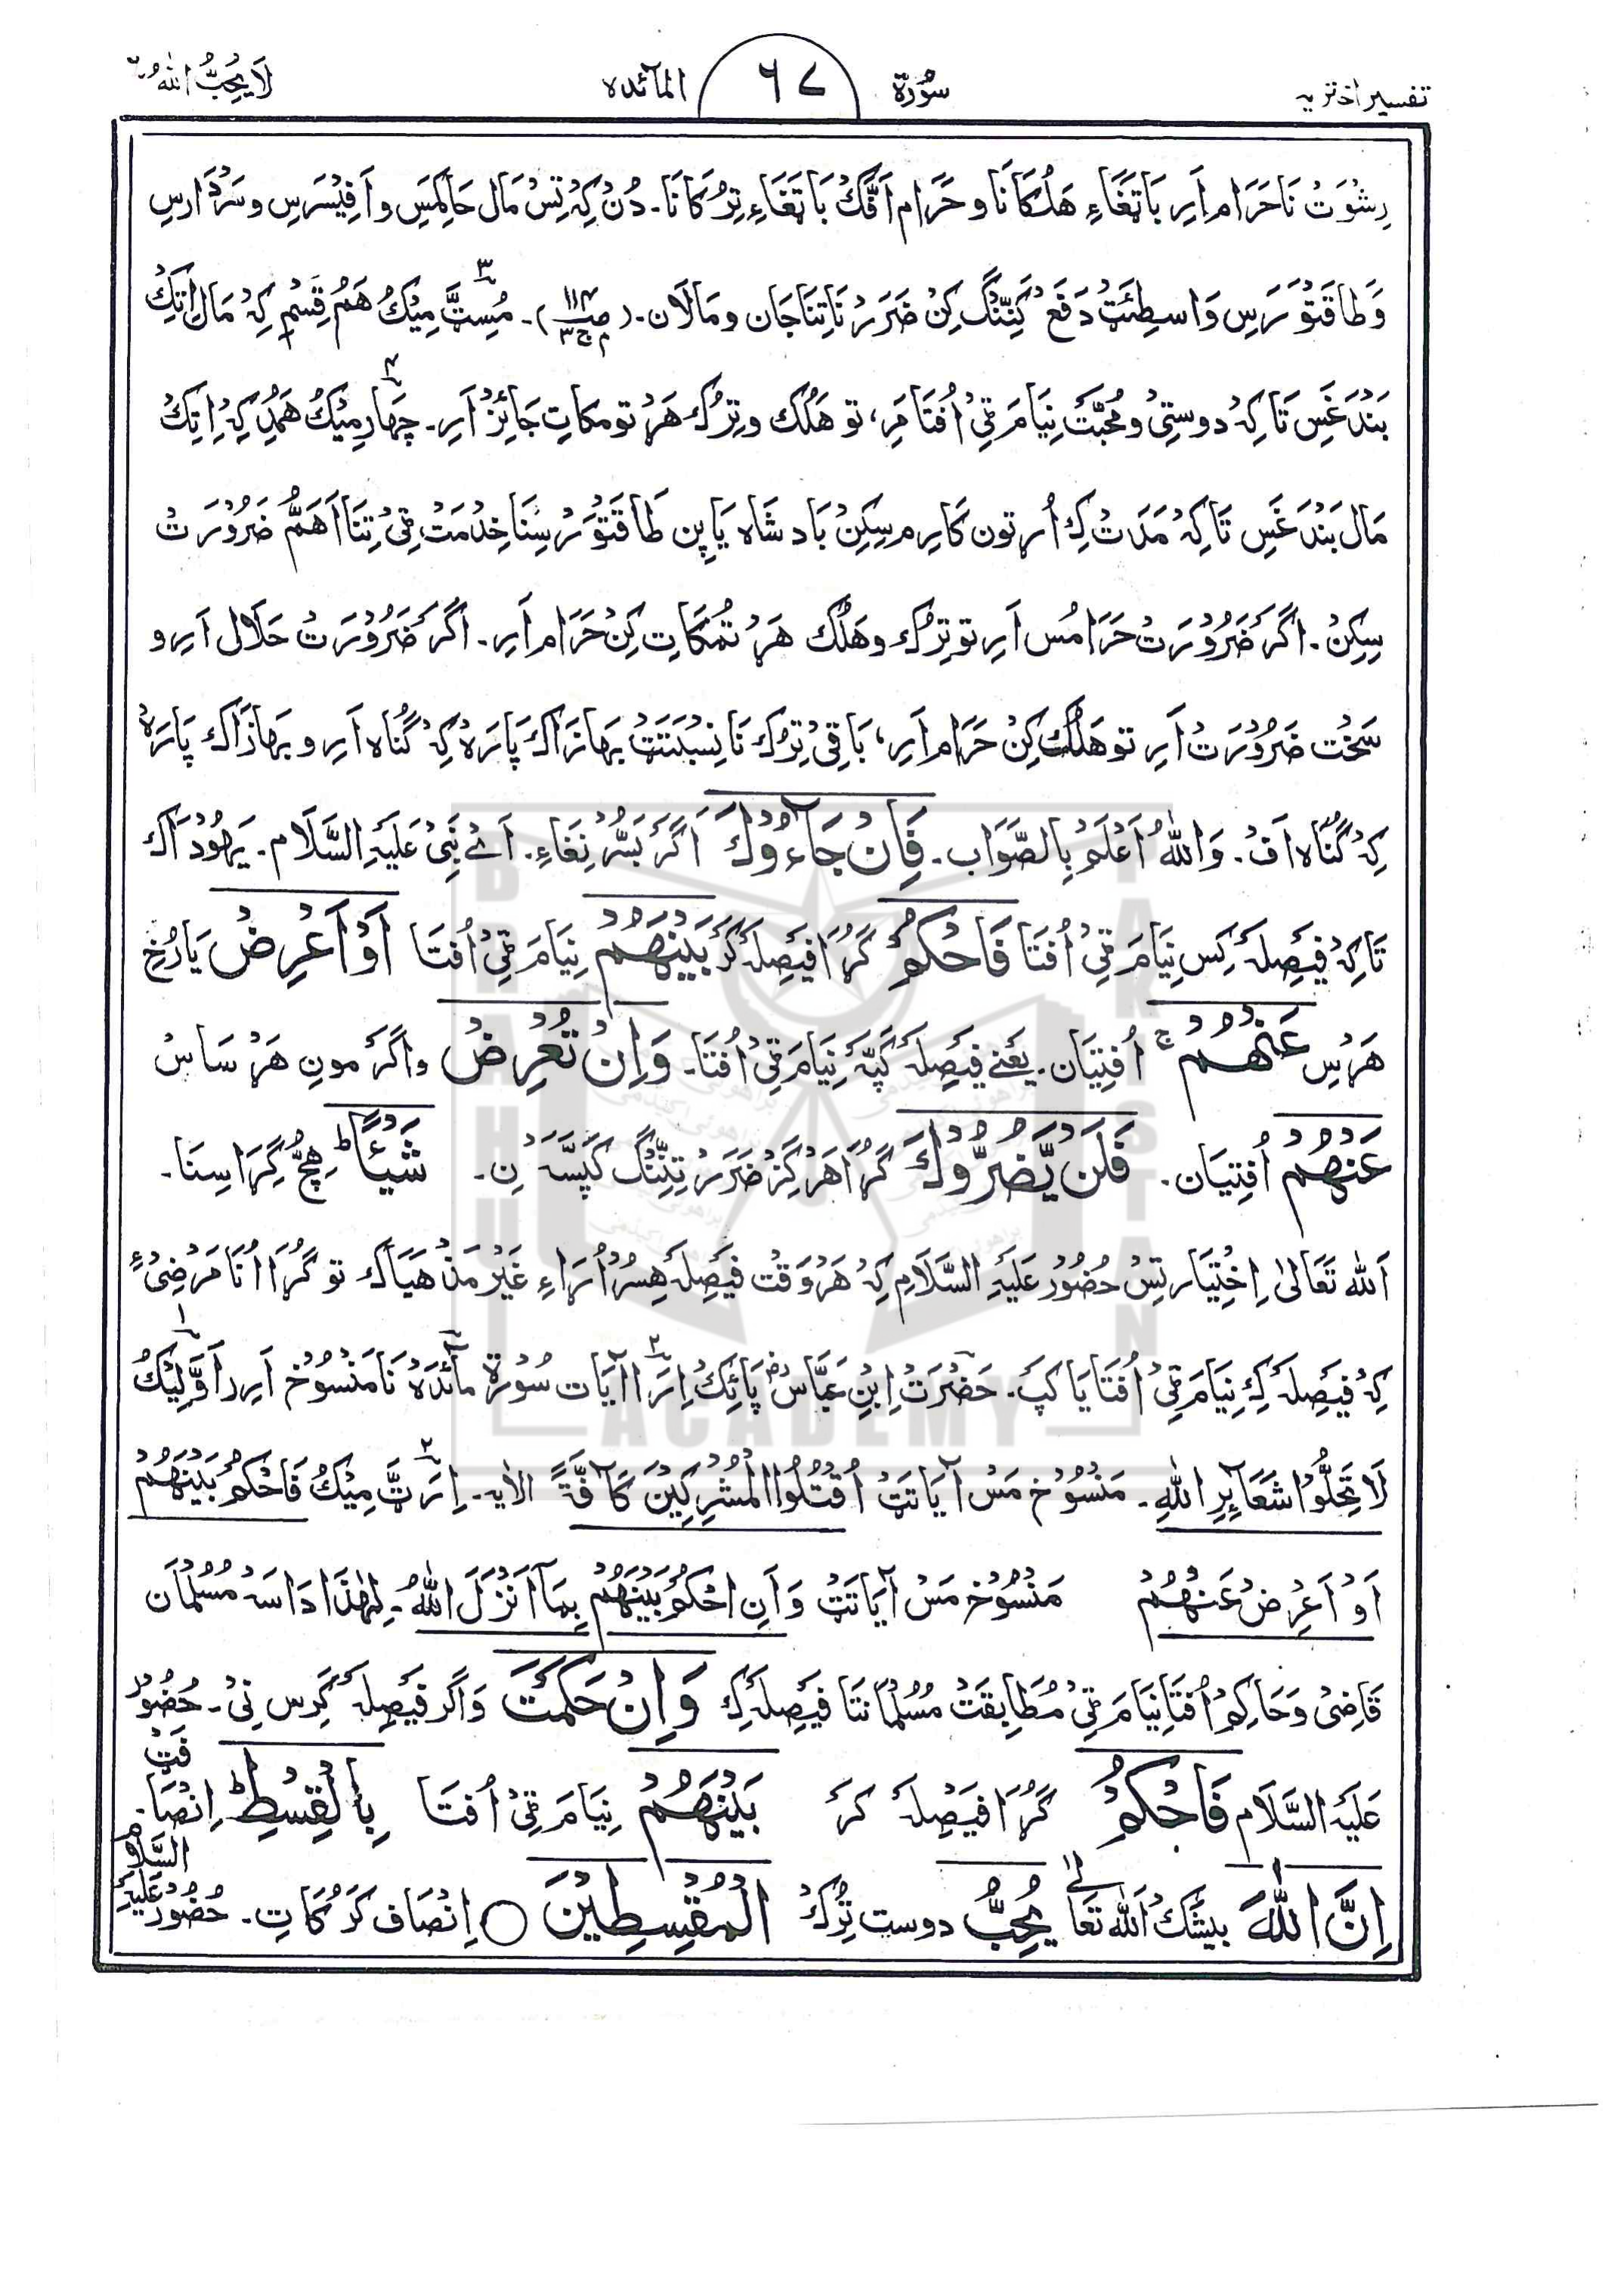 تفسیر اختریہ سُوْرَۃ ٦٧ المآئدہ لَا یُحِبُّ اللّٰہُ ٦
رِشْوَتْ نَا حَرَام اَرِ بَاتَغَاءِ هَلُکَانَا و حَرَام اَفَّکْ بَاتَغَاءِ تِرُکَانَا۔ دُنْ کِہْ تِسْ مَال حَاکِمَسِ و اَفِیْسَرِس و سَرْدَارِس
وَ طَاقَتْوَرَسِ وَاسِطَئَتْ دَفَعْ کَنِّنْگ کِنْ ضَرَرْ نَا تِنَا جَان و مَالَان۔ (ص۱۱۴ ج۳م)۔ مُسِٹَّ مِیْکُ هَمُ قِسْمِ کِہْ مَال اِتِکْ
بَنْدَغَسِ تَاکِہْ دوستِیْ و مُحَبَّتْ نِیَامَ ٹِیْ اُفْتَا مَرِ، تو هَلُک و تِرُک هَرْتومَکَاتِ جَائِزْ اَرِ۔ چَهَار مِیْکُ هَمُدِ کِہْ اِتِکْ
مَال بَنْدَغَسِ تَاکِہْ مَدَتْ کِ اُرتون کَارِیمَ سِکِنْ بَادشَاہ یَا پِن طَاقَتْوَرْ سِنَا خِدْمَتْ ٹِیْ تِنَا اَهَمُّ ضَرُوْرَتْ
سِکِنْ۔ اگَر ضَرُوْرَتْ حَرَامُس اَرِ تو تِرُک و هَلُک هَرْتُمَکَاتِ کِنْ حَرَام اَرِ۔ اگَر ضَرُوْرَتْ حَلَال اَرِ و
سَخْت ضَرُوْرَتْ اَرِ تو هَلُک کِنْ حَرَام اَرِ، بَاقِیْ تِرُک نَا نِسْبَتَتْ بهَازَاک پَارَہْ کِہْ گُنَاہ اَرِ و بهَازَاک پَارَہْ
کِہْ گُنَاہ اَفْ۔ وَاللّٰہُ اَعْلَمُ بِالصَّوَابِ۔ فَاِنْ جَآءُوْکَ اَگَر بَسُّرْ نِغَاءِ۔ اَے نَبِیْ عَلَیْہِ السَّلَام۔ یَهُوْدَاک
تَاکِہْ فَیْصِلَہ کِس نِیَامَ ٹِیْ اُفْتَا فَاحْکُمْ گُرَا فَیْصِلَہ کَرْ بَیْنَهُمْ نِیَامَ ٹِیْ اُفْتَا اَوْ اَعْرِضْ یَا رُخِ
هَرْسِ عَنْهُمْ ج اُفْتِیَان۔ یَعْنِے فَیْصِلَہ کَپَّہ نِیَامَ ٹِیْ اُفْتَا۔ وَاِنْ تُعْرِضْ و اگَر مونِ هَرْسَاسْ
عَنْهُمْ اُفْتِیَان۔ فَلَنْ یَّضُرُّوْکَ گُرَا هَرْگِزْ ضَرَرْ تِنِّنْگ کَپَسَّہ نِ۔ شَیْـًٔا ط هِچُّ گِرَاسِنَا۔
اَللہ تَعَالیٰ اِخْتِیَار تِسْ حُضُوْر عَلَیْہِ السَّلَامِ کِہْ هَرْوَقْت فَیْصِلَہ هِسُرْ اُرَاءِ غَیْر مَذْهَبَاک تو گُرَا اُنَا مَرْضِیْءِ
کِہْ فَیْصِلَہ کِ نِیَامَ ٹِیْ اُفْتَا یَا کَپِ۔ حَضْرَتْ اِبْنِ عَبَّاسْ پَائِکْ اِرَا آیَات سُوْرَۃ مآئدَہ نَا مَنْسُوْخ اَرِ اَوَّلِیْکُ
لَا تُحِلُّوْا شَعَآئِرَ اللّٰهِ۔ مَنْسُوْخ مَسْ آیَاتَتْ اُقْتُلُوا الْمُشْرِکِیْنَ کَآفَّۃً الایہ۔ اِرَٹَّ مِیْکُ فَاحْکُمْ بَیْنَهُمْ
اَوْ اَعْرِضْ عَنْهُمْ مَنْسُوْخ مَسْ آیَاتَتْ وَاَنِ احْکُمْ بَیْنَهُمْ بِمَآ اَنْزَلَ اللّٰہُ۔ لِهٰذَا دَاسَہ مُسُلْمَان
قَاضِیْ وَ حَاکِمْ اُفْتَا نِیَامَ ٹِیْ مُطَابِقَتْ مُسُلْمَانْتَا فَیْصِلَہ کِ وَاِنْ حَکَمْتَ وَ اَگَر فَیْصِلَہ کَرِس نِیْ۔ حُضُوْر
عَلَیْہِ السَّلَام فَاحْکُمْ گُرَا فَیْصِلَہ کَر بَیْنَهُمْ نِیَامَ ٹِیْ اُفْتَا بِالْقِسْطِ ط اِنْصَافَتْ۔
اِنَّ اللّٰهَ بیشَکْ اَللہ تَعَالٰے یُحِبُّ دوست تِرُکْ الْمُقْسِطِیْنَ ○ اِنْصَاف کَرُکَاتِ۔ حُضُوْر عَلَیْہِ السَّلَام
BRAHUI
ACADEMY
PAKISTAN